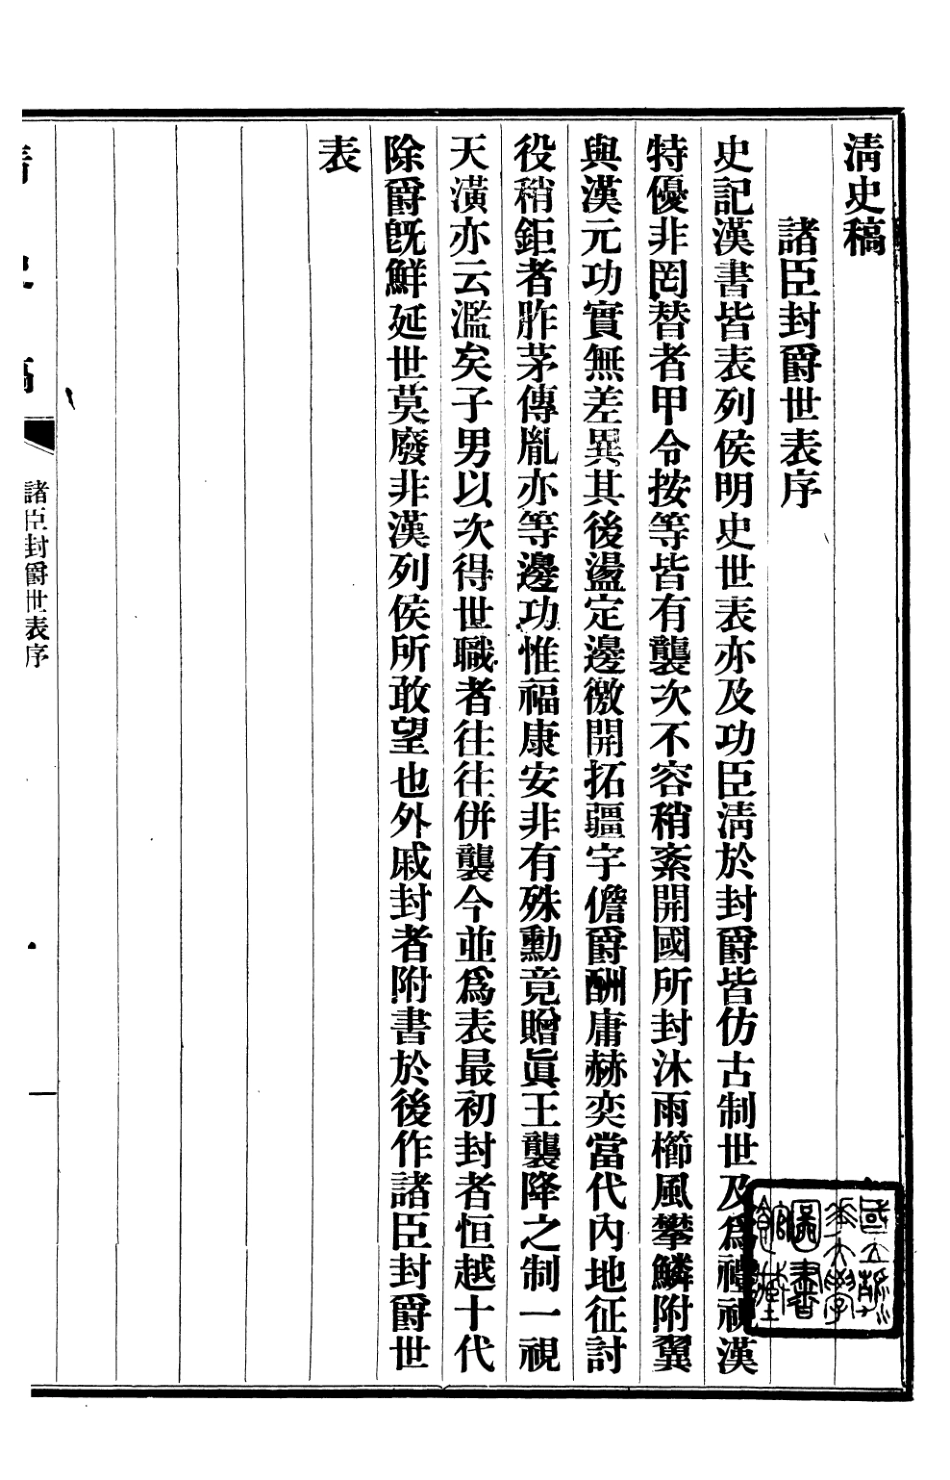 清史稿
諸臣封爵世表序
史記漢書皆表列侯明史世表亦及功臣清於封爵皆仿古制世及爲禮視漢
特優非罔替者甲令按等皆有襲次不容稍紊開國所封沐雨櫛風攀鱗附翼
與漢元功實無差異其後盪定邊徼開拓疆宇儋爵酬庸赫奕當代內地征討
役稍鉅者胙茅傳胤亦等邊功惟福康安非有殊勳竟贈眞王襲降之制一視
天潢亦云濫矣子男以次得世職者往往併襲今並爲表最初封者恒越十代
除爵旣鮮延世莫廢非漢列侯所敢望也外戚封者附書於後作諸臣封爵世
表
清史稿
諸臣封爵世表序
一